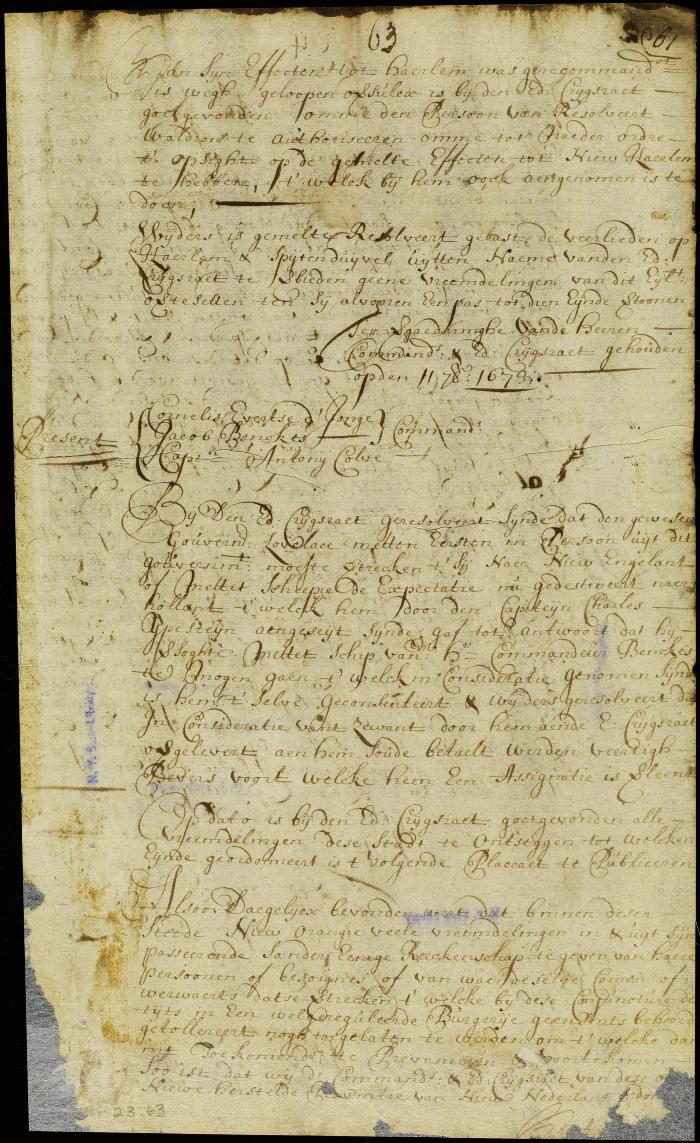 63
61
aen Syn Effecten tot Haerlem was gerecommand
is wegh geloopen opsulcx is bij den Ed: Crijgsraet
goetgevonden omme den Persoon van Resolveert
Waldron te authoriseeren omme tot Naeder ordre
t' opsight op de gemelte Effecten tot Niew Haerlem
te hebben, t' welck bij hem oock aengenomen is te
doen;
Wyders is gemelte Resolveert gelast de veerlieden op
Haerlem & Spijtenduijvel uijtten Naeme vanden Ed:
Crijgsraet te geene vreemdelingen van dit Eijlt
ofte setten ten sij alvooren Een pas tot dien Eijnde thoonen
Ter Vergaederinghe vande Heeren
Command:rs & Ed: Crijgsraet gehouden
op den 11 7b: 1673.
Present
Cornelis Evertse d' Jonge
Jacob Benckes
Command:rs
Capt:n Antony Colve
By Den Ed: Crijgsraet geresolveert Synde dat den gewesen
Gouvern:r Lovelace metten Eersten in Persoon uijt dit
gouvernm:t moeste vertrecken t' Sij Naer Niew Engelant
of mettet Scheepie de Expectatie nu gedestineert naer
hollant t' welck hem door den Capiteyn Charles
Epesteyn aengeseijt synde, gaf tot antwoort dat hij
versoghte mettet schip van d'hr Commandeur Benckes
te mogen gaen, t' welck in Consideratie genomen synde
is hem t' selve geconsenteert & wijders geresolveert dat
In Consideratie want door hem aende E: Crijgsraet
opgelevert aen hem soude betaelt werden veertigh
Bevers voort welcke hem Een Assignatie is verleent
Op dato is bij den Ed: Crijgsraet goetgevonden alle
vreemdelingen dese Stadt te ontseggen tot welcken
Eynde geordonneert is t volgende Placcaet te Publiceeren
Alsoo Daegelijcx bevonden wert dat binnen deser
Steede Niew Orangie veele vreemdelingen in & uijt sijn
passeerende sonder Eenige Reeckenschap te geven van haere
persoonen of besoignes of van waer deselve Comen of
werwaerts datse vertrecken t' welcke bij dese Conjuncture des
tyts in Een welgereguleerde Burgerije geensints behoort
getollereert nogh toegelaten te werden om t' welcke dan
int Toekomende te Prevenieren & voortekomen
Soo ist dat wij d:e Command:rs & Ed: Crijgsraet van dese
Niewe herstelde Provintie van Niew Nederlant
N.Y. State Library
23:63